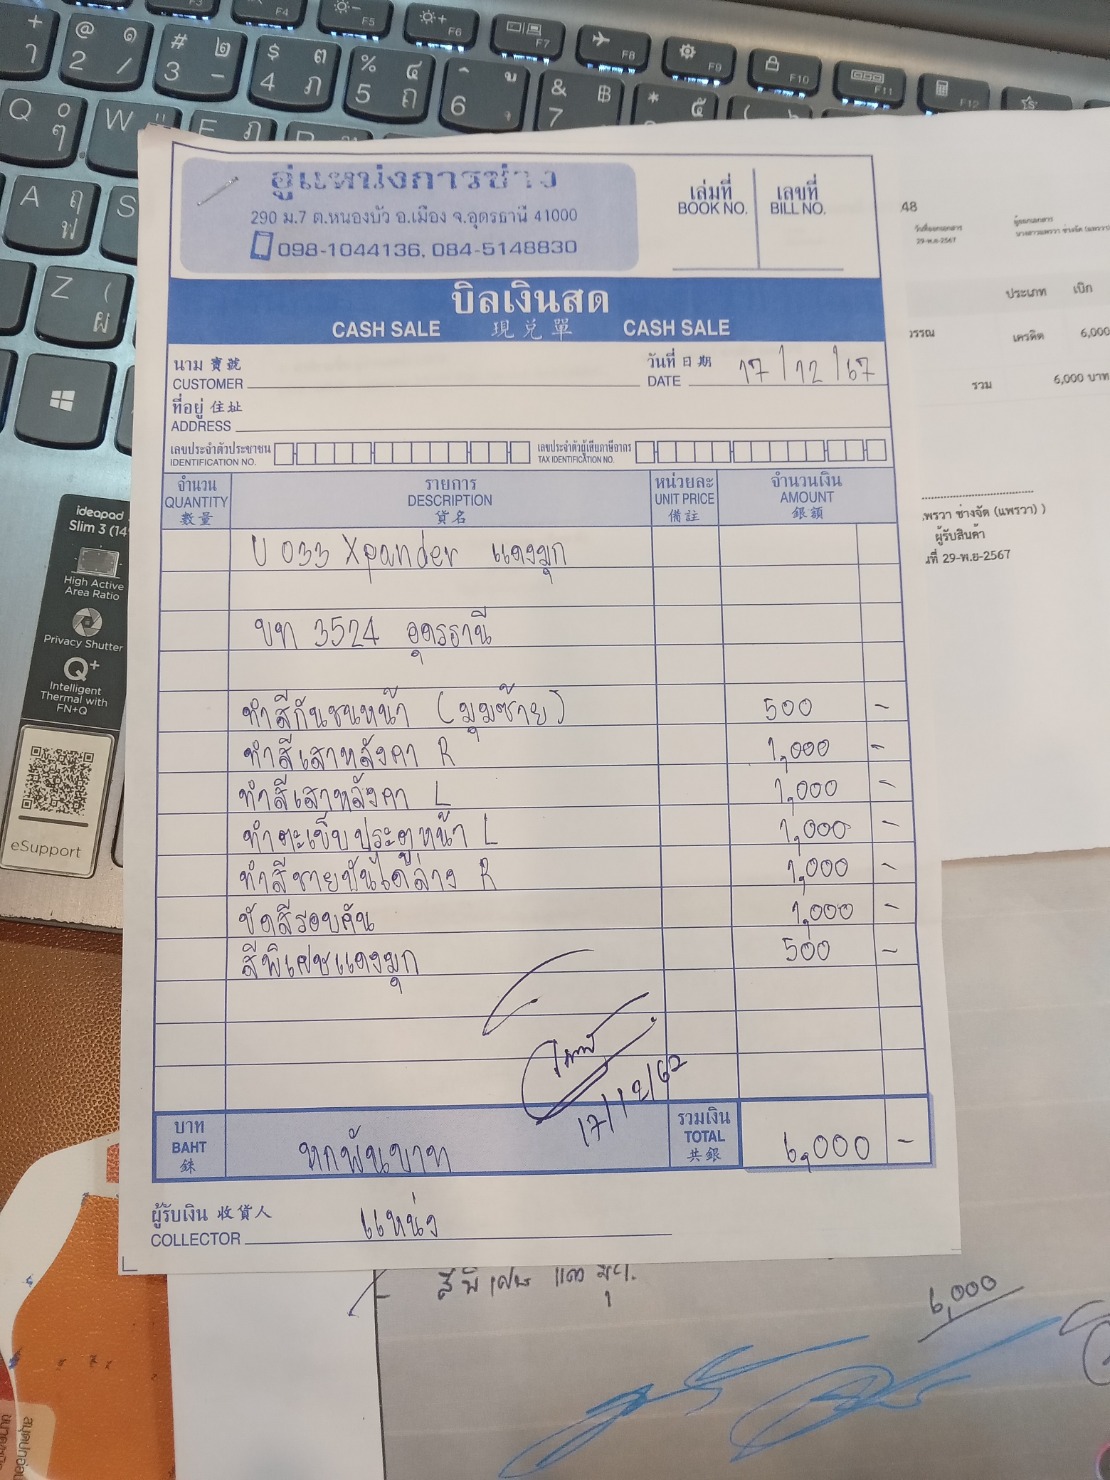 อู่แหน่งการช่าง
290 ม.7 ต.หนองบัว อ.เมือง จ.อุดรธานี 41000
098-1044136, 084-5148830
เล่มที่
BOOK NO.
เลขที่
BILL NO.
บิลเงินสด
CASH SALE 現兌單 CASH SALE
นาม 寶號
CUSTOMER
วันที่ 日期
DATE 17/12/67
ที่อยู่ 住址
ADDRESS
เลขประจำตัวประชาชน
IDENTIFICATION NO.
เลขประจำตัวผู้เสียภาษีอากร
TAX IDENTIFICATION NO.
จำนวน
QUANTITY
數量
รายการ
DESCRIPTION
貨名
หน่วยละ
UNIT PRICE
備註
จำนวนเงิน
AMOUNT
銀額
U033 Xpander แดงมุก
ขท 3524 อุดรธานี
ทำสีกันชนหน้า (มุมซ้าย) 500 -
ทำสีเสาหลังคา R 1,000 -
ทำสีเสาหลังคา L 1,000 -
ทำตะเข็บประตูหน้า L 1,000 -
ทำสีชายบันไดล่าง R 1,000 -
ขัดสีรอบคัน 1,000 -
สีพิเศษแดงมุก 500 -
17/12/62
บาท
BAHT
銖
หกพันบาท
รวมเงิน
TOTAL
共銀
6,000 -
ผู้รับเงิน 收貨人
COLLECTOR แหน่ง
48
29-พ.ย-2567
ประเภท เบิก
วรรณ เครดิต 6,000
รวม 6,000 บาท
พรวา ช่างจัด (แพรวา) )
ผู้รับสินค้า
ที่ 29-พ.ย-2567
6,000
ideapad
Slim 3 (14
High Active
Area Ratio
Privacy Shutter
Q+
Intelligent
Thermal with
FN+Q
eSupport